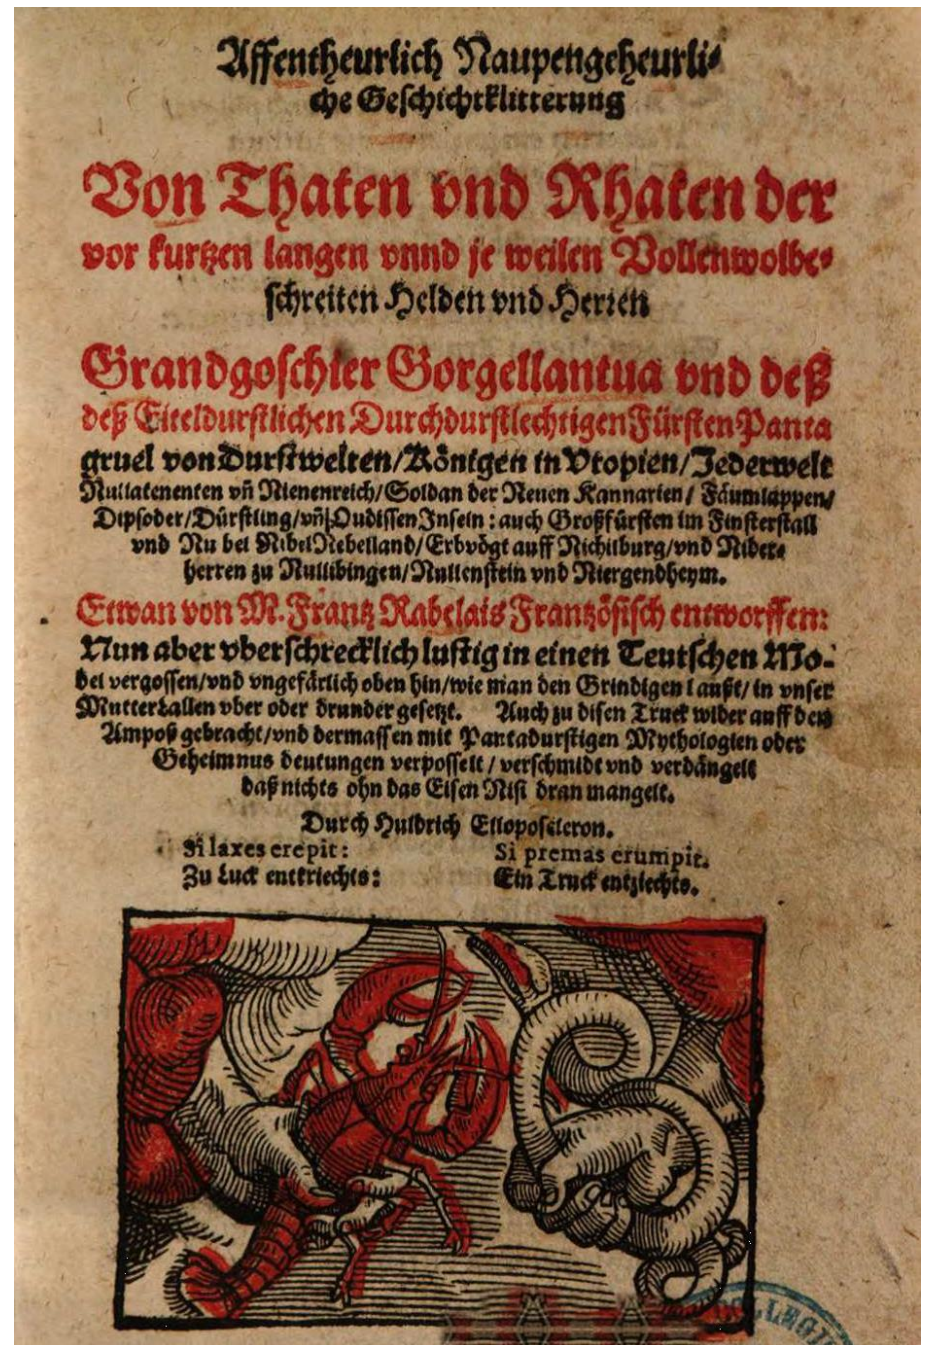 Affentheurlich Naupengeheurli-
che Geschichtklitterung
Von Thaten vnd Rhaten der
vor kurtzen langen vnnd je weilen Vollenwolbe-
schreiten Helden vnd Herren
Grandgoschier Gorgellantua vnd deß
deß Eiteldurstlichen Durchdurstlechtigen Fürsten Panta
gruel von Durstwelten/Königen in Vtopien/Jederwelt
Nullatenenten vñ Nienenreich/Soldan der Neuen Kannarien/ Fäumlappen/
Dipsoder/Dürstling/vñ Oudissen Inseln: auch Großfürsten im Finsterstall
vnd Nu bel NibelNebelland/Erbvögt auff Nichilburg/vnd Nider-
herren zu Nullibingen/Nullenstein vnd Niergendheym.
Etwan von M. Frantz Rabelais Frantzösisch entworffen:
Nun aber vberschrecklich lustig in einen Teutschen Mo-
del vergossen/vnd vngefärlich oben hin/wie man den Grindigen laußt/in vnser
MutterLallen vber oder drunder gesetzt. Auch zu disen Truck wider auff den
Ampoß gebracht/vnd dermassen mit Pantadurstigen Mythologien oder
Geheimnus deutungen verposselt/verschmidt vnd verdängelt
daß nichts ohn das Eisen Nisi dran mangelt.
Durch Huldrich Elloposcleron.
Si laxes erepit: Si premas erumpit.
Zu Luck entkriechts: Ein Truck entziechts.
LLEGI